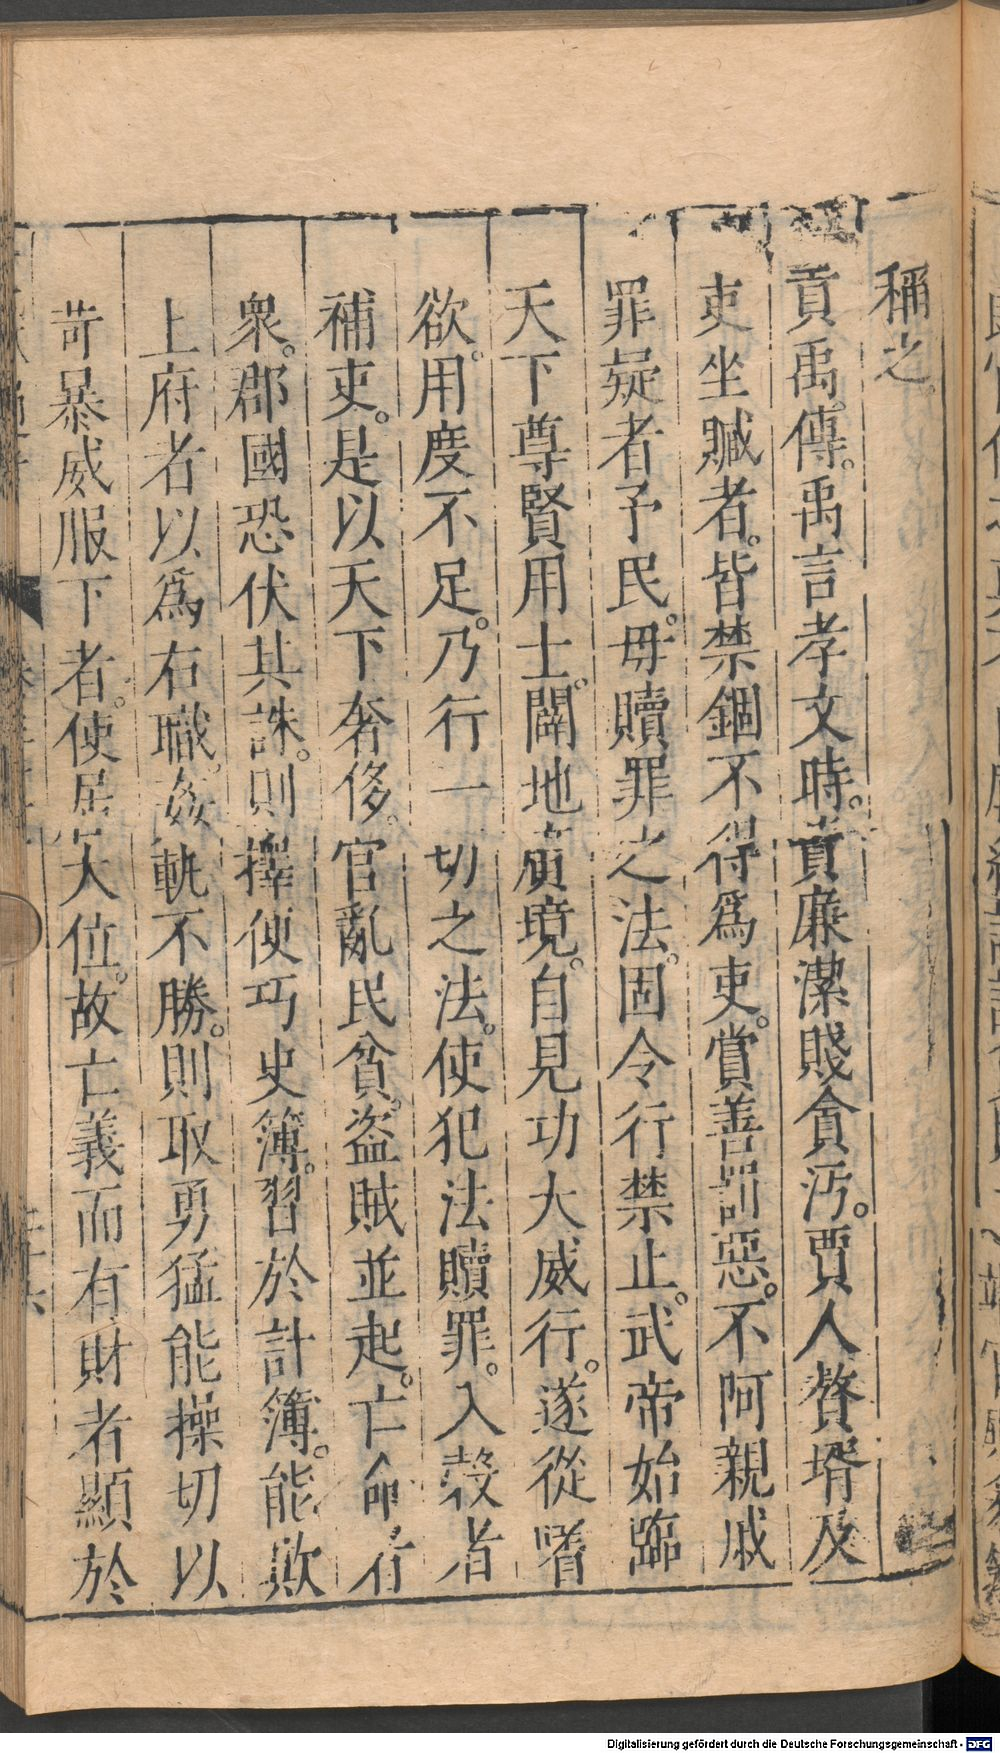 稱之。
貢禹傳。禹言孝文時。貴廉潔賤貪汚。賈人贅壻及
吏坐贓者。皆禁錮不得爲吏。賞善罰惡。不阿親戚
罪疑者予民。毋贖罪之法。固令行禁止。武帝始臨
天下尊賢用士。闢地廣境。自見功大威行。遂從嗜
欲。用度不足。乃行一切之法。使犯法贖罪。入穀者
補吏。是以天下奢侈。官亂民貧。盜賊並起。亡命者
衆。郡國恐伏其誅。則擇便巧史簿。習於計簿。能欺
上府者以爲右職。姦軌不勝。則取勇猛能操切以
苛暴威服下者。使居大位。故亡義而有財者顯於
Digitalisierung gefördert durch die Deutsche Forschungsgemeinschaft - DFG